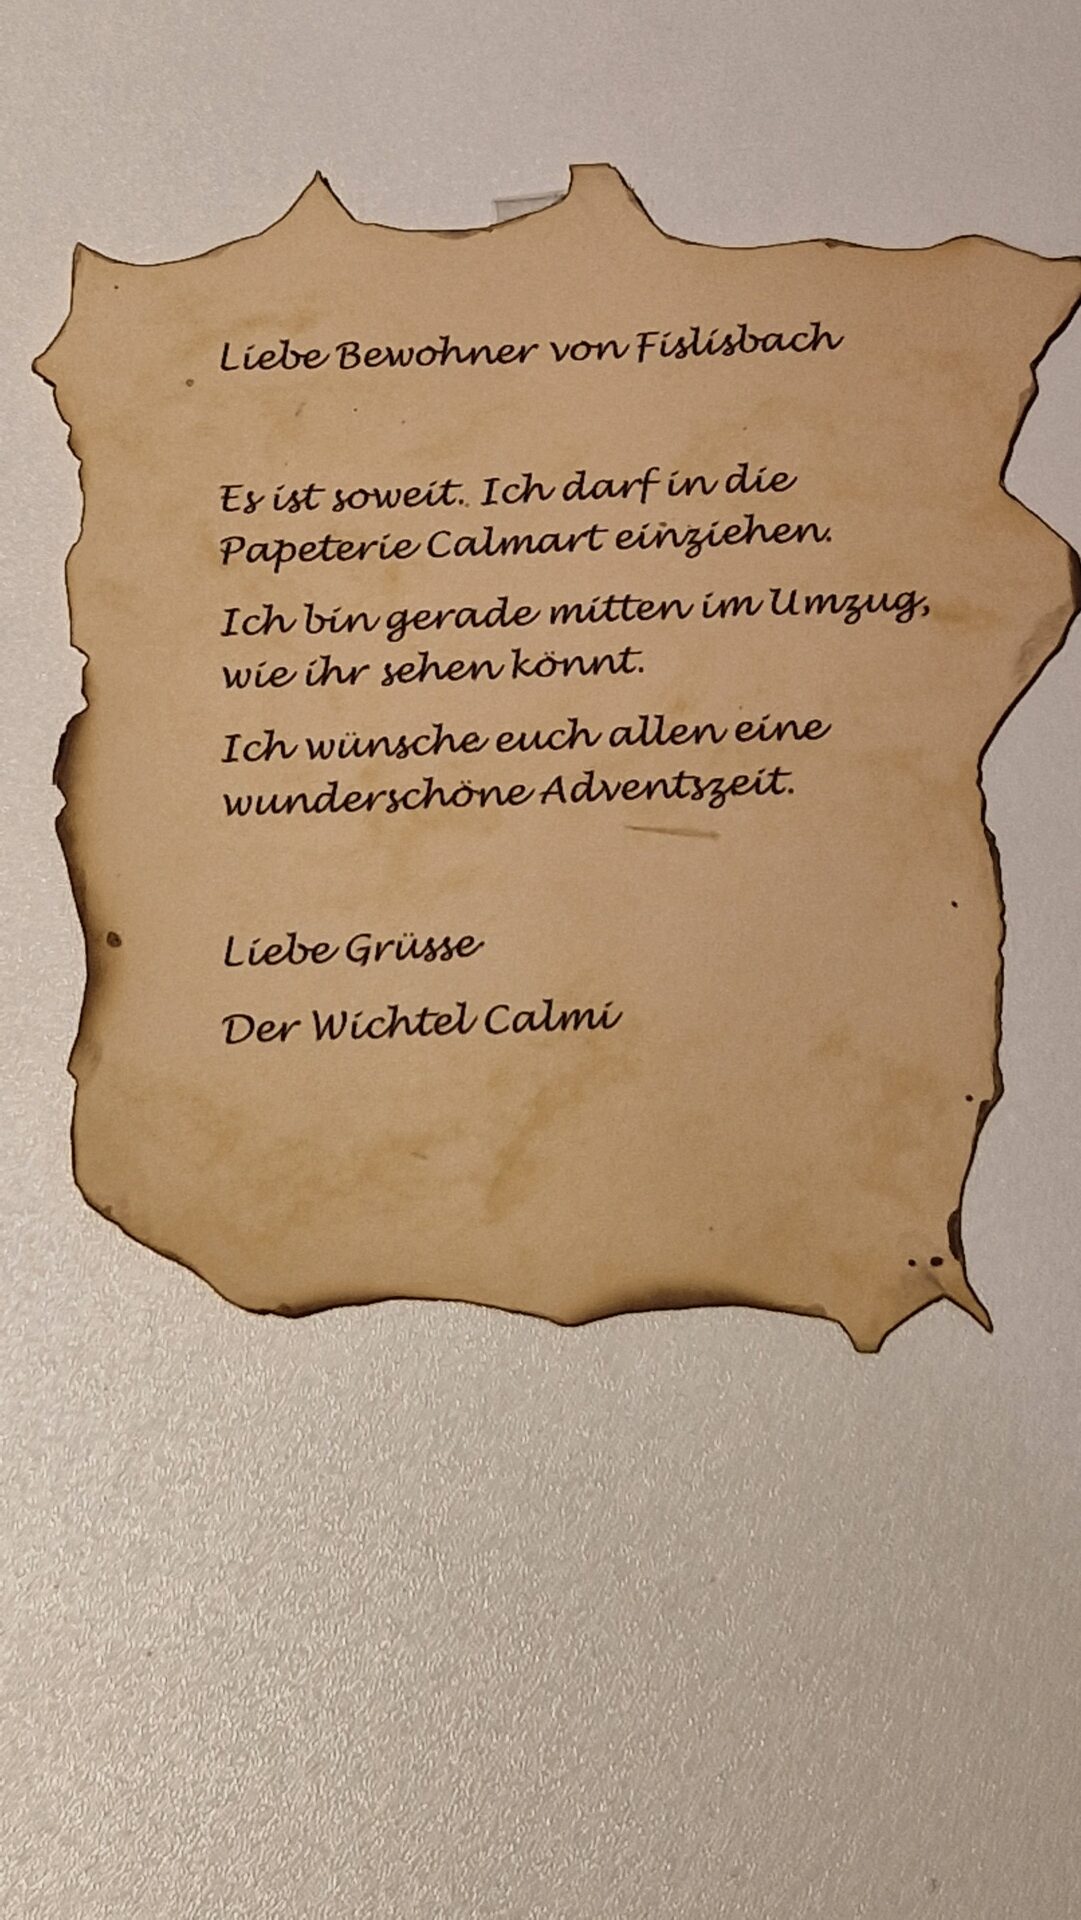 Liebe Bewohner von Fislisbach
Es ist soweit. Ich darf in die
Papeterie Calmart einziehen.
Ich bin gerade mitten im Umzug,
wie ihr sehen könnt.
Ich wünsche euch allen eine
wunderschöne Adventszeit.
Liebe Grüsse
Der Wichtel Calmi